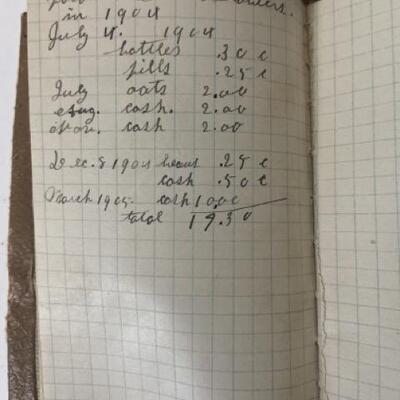 in 1904
July 4. 1904
bottles .30 c
pills .25 c
July oats 2.00
cash. 2.00
cash 2.00
Dec. 8 1904 .25 c
cash .50 c
March 1905 cash 10.00
total 17.30